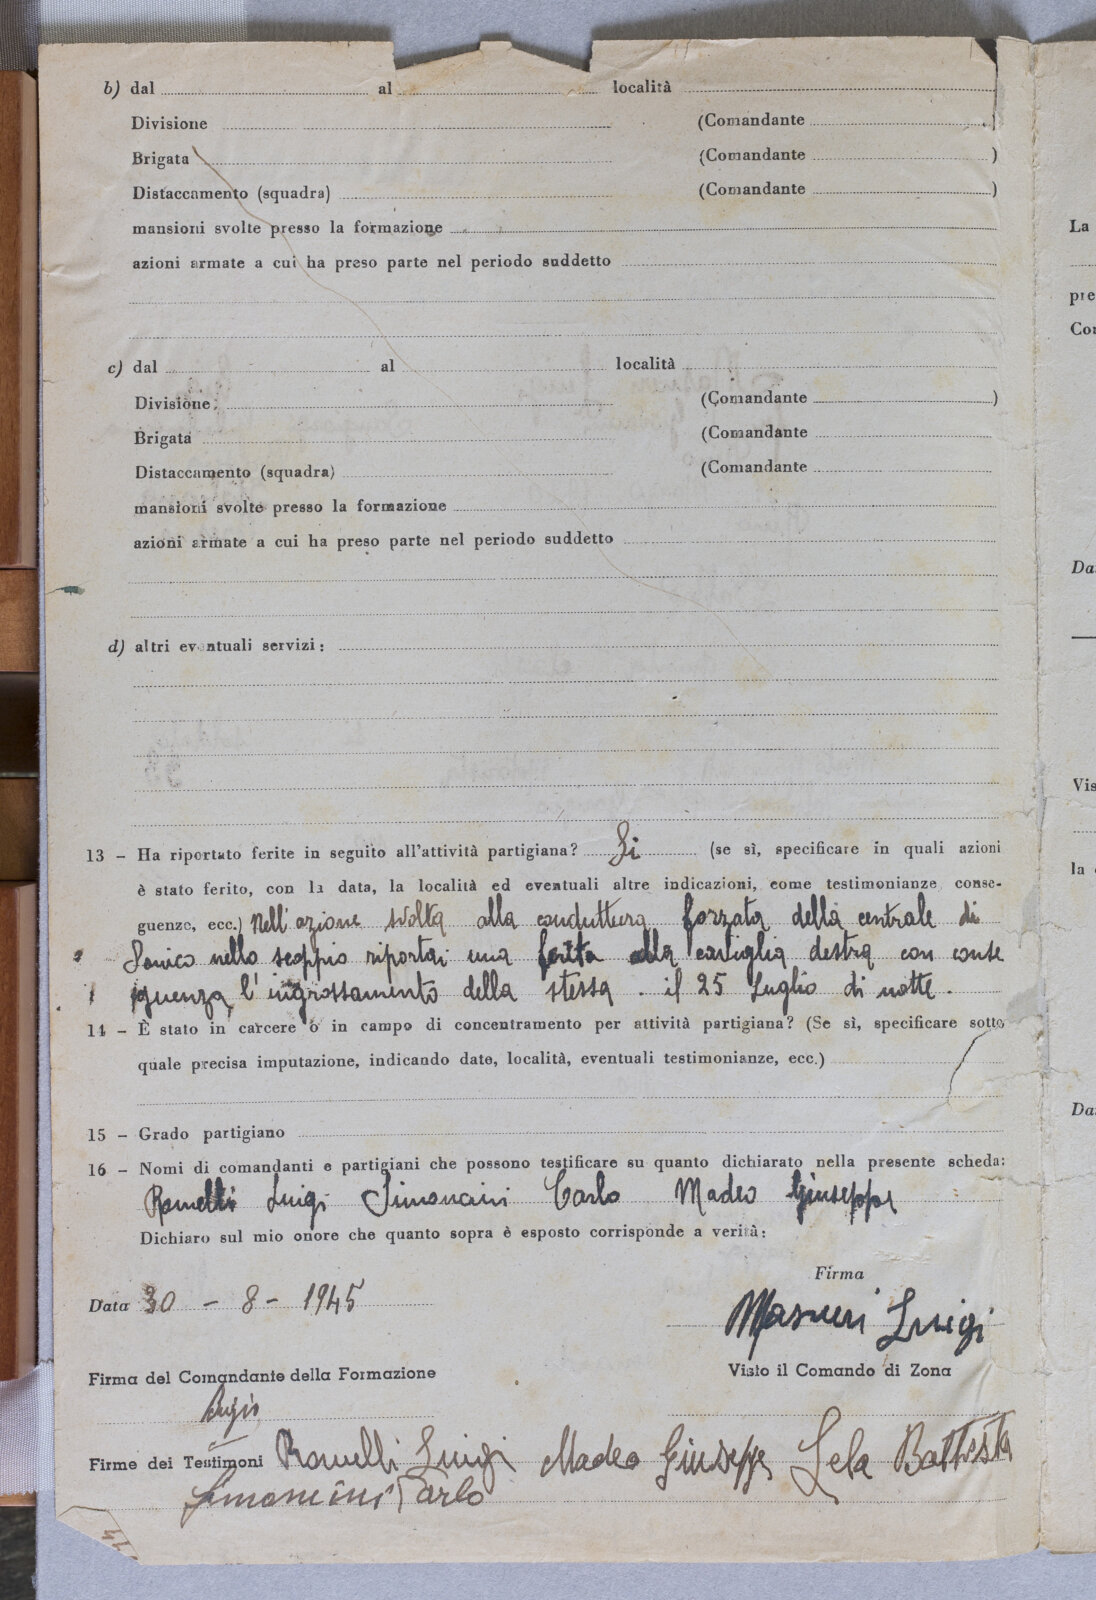 b) dal al località
Divisione (Comandante )
Brigata (Comandante )
Distaccamento (squadra) (Comandante )
mansioni svolte presso la formazione
azioni armate a cui ha preso parte nel periodo suddetto
c) dal al località
Divisione (Comandante )
Brigata (Comandante
Distaccamento (squadra) (Comandante
mansioni svolte presso la formazione
azioni armate a cui ha preso parte nel periodo suddetto
d) altri eventuali servizi:
13 - Ha riportato ferite in seguito all'attività partigiana? Si (se sì, specificare in quali azioni
è stato ferito, con la data, la località ed eventuali altre indicazioni, come testimonianze, conse-
guenze, ecc.) Nell'azione svolta alla conduttura forzata della centrale di
Sonico nello scoppio riportai una ferita alla caviglia destra con conse
guenza l'ingrossamento della stessa. il 25 Luglio di notte.
14 - È stato in carcere o in campo di concentramento per attività partigiana? (Se sì, specificare sotto
quale precisa imputazione, indicando date, località, eventuali testimonianze, ecc.)
15 - Grado partigiano
16 - Nomi di comandanti e partigiani che possono testificare su quanto dichiarato nella presente scheda:
Romelli Luigi Simoncini Carlo Madeo Giuseppe
Dichiaro sul mio onore che quanto sopra è esposto corrisponde a verità:
Firma
Data 30 - 8 - 1945
Masneri Luigi
Firma del Comandante della Formazione Visto il Comando di Zona
Firme dei Testimoni Romelli Luigi Madeo Giuseppe Battista
Simoncini Carlo
La
pre
Co
Da
Vis
la
Da